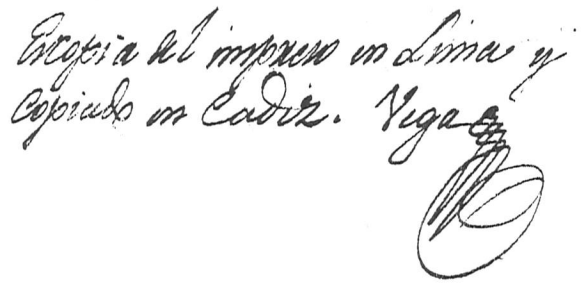 Es copia del impreso en Lima y
copiado en Cadiz. Vega